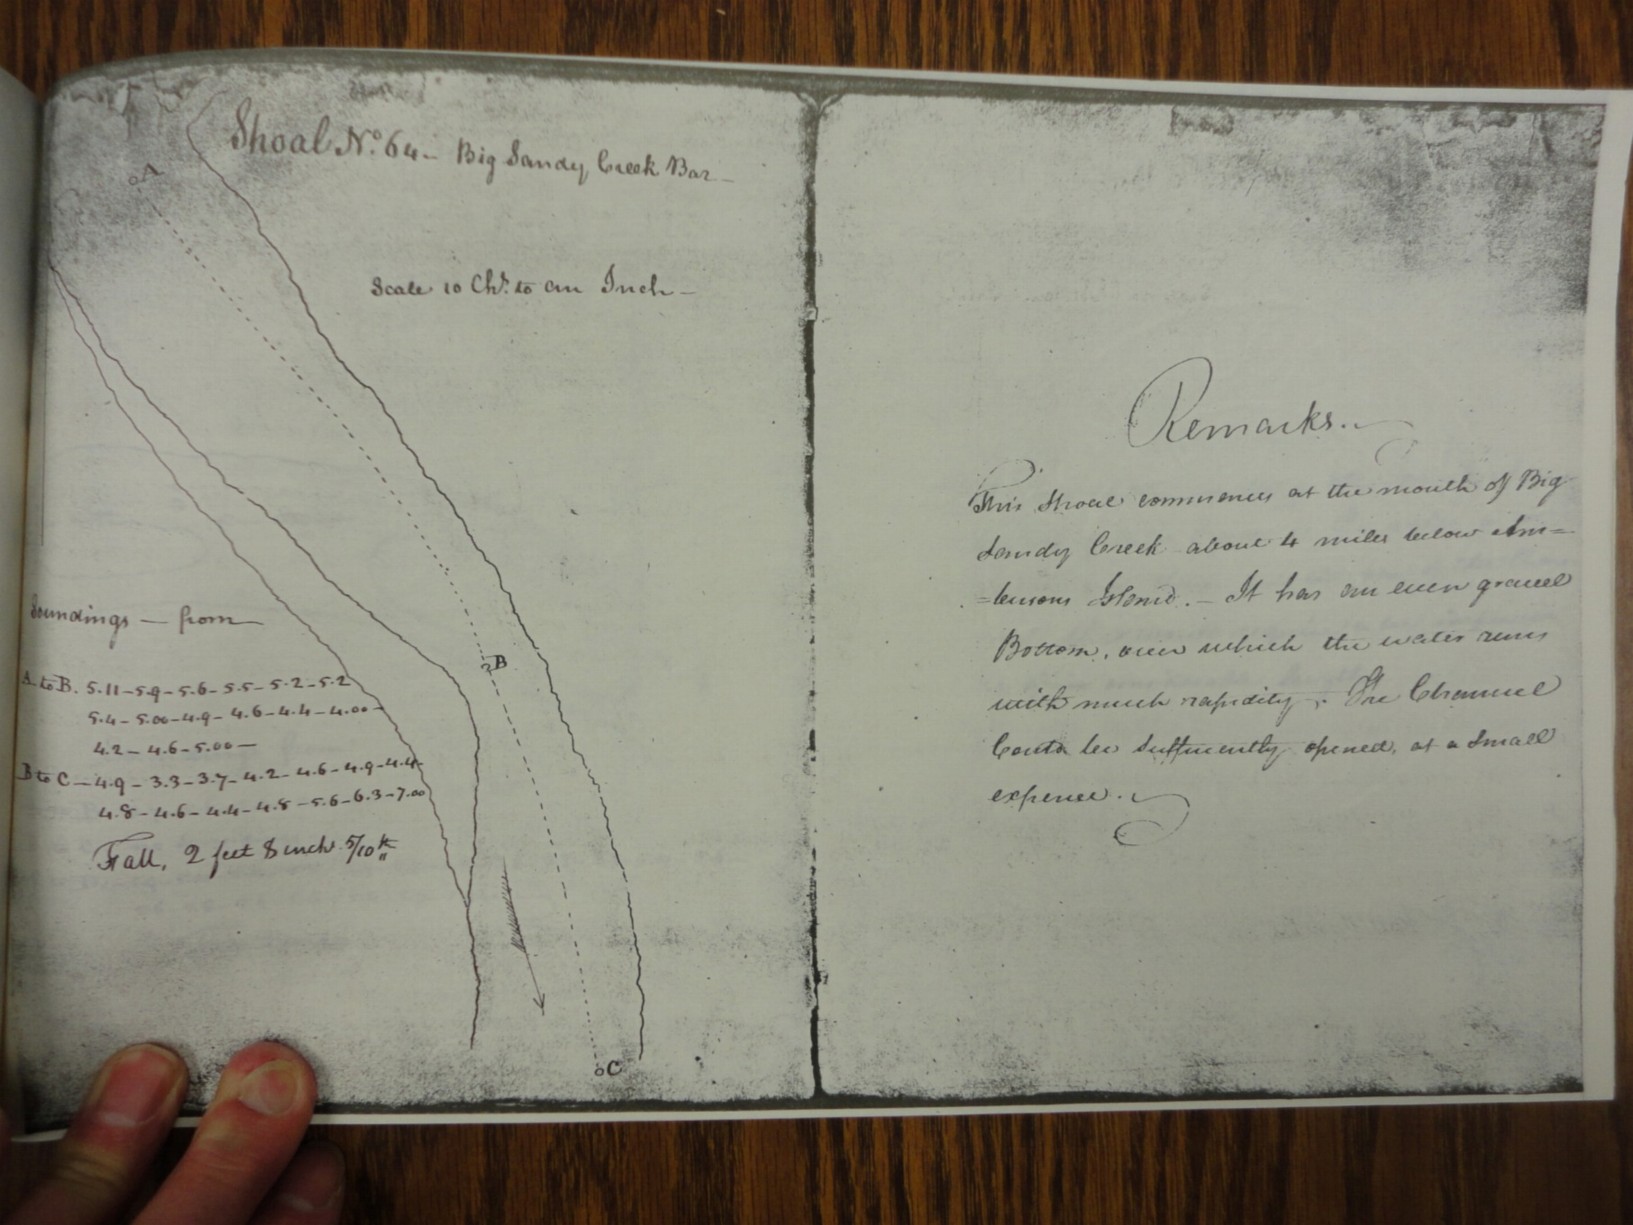 Shoal No. 64 — Big Sandy Creek Bar —
A
Scale 10 Chs. to an Inch —
Soundings — from
B
A to B. 5.11 – 5.9 – 5.6 – 5.5 – 5.2 – 5.2
5.4 – 5.00 – 4.9 – 4.6 – 4.4 – 4.00 –
4.2 – 4.6 – 5.00 —
B to C — 4.9 – 3.3 – 3.7 – 4.2 – 4.6 – 4.9 – 4.4 –
4.8 – 4.6 – 4.4 – 4.8 – 5.6 – 6.3 – 7.00
Fall, 2 feet 8 inchs 5/10ths
C
Remarks.
This Shoal commences at the mouth of Big
Sandy Creek about 4 miles below Am=
=bersons Island. — It has an even gravel
Bottom, over which the water runs
with much rapidity. The Channel
Could be sufficiently opened, at a small
expence.